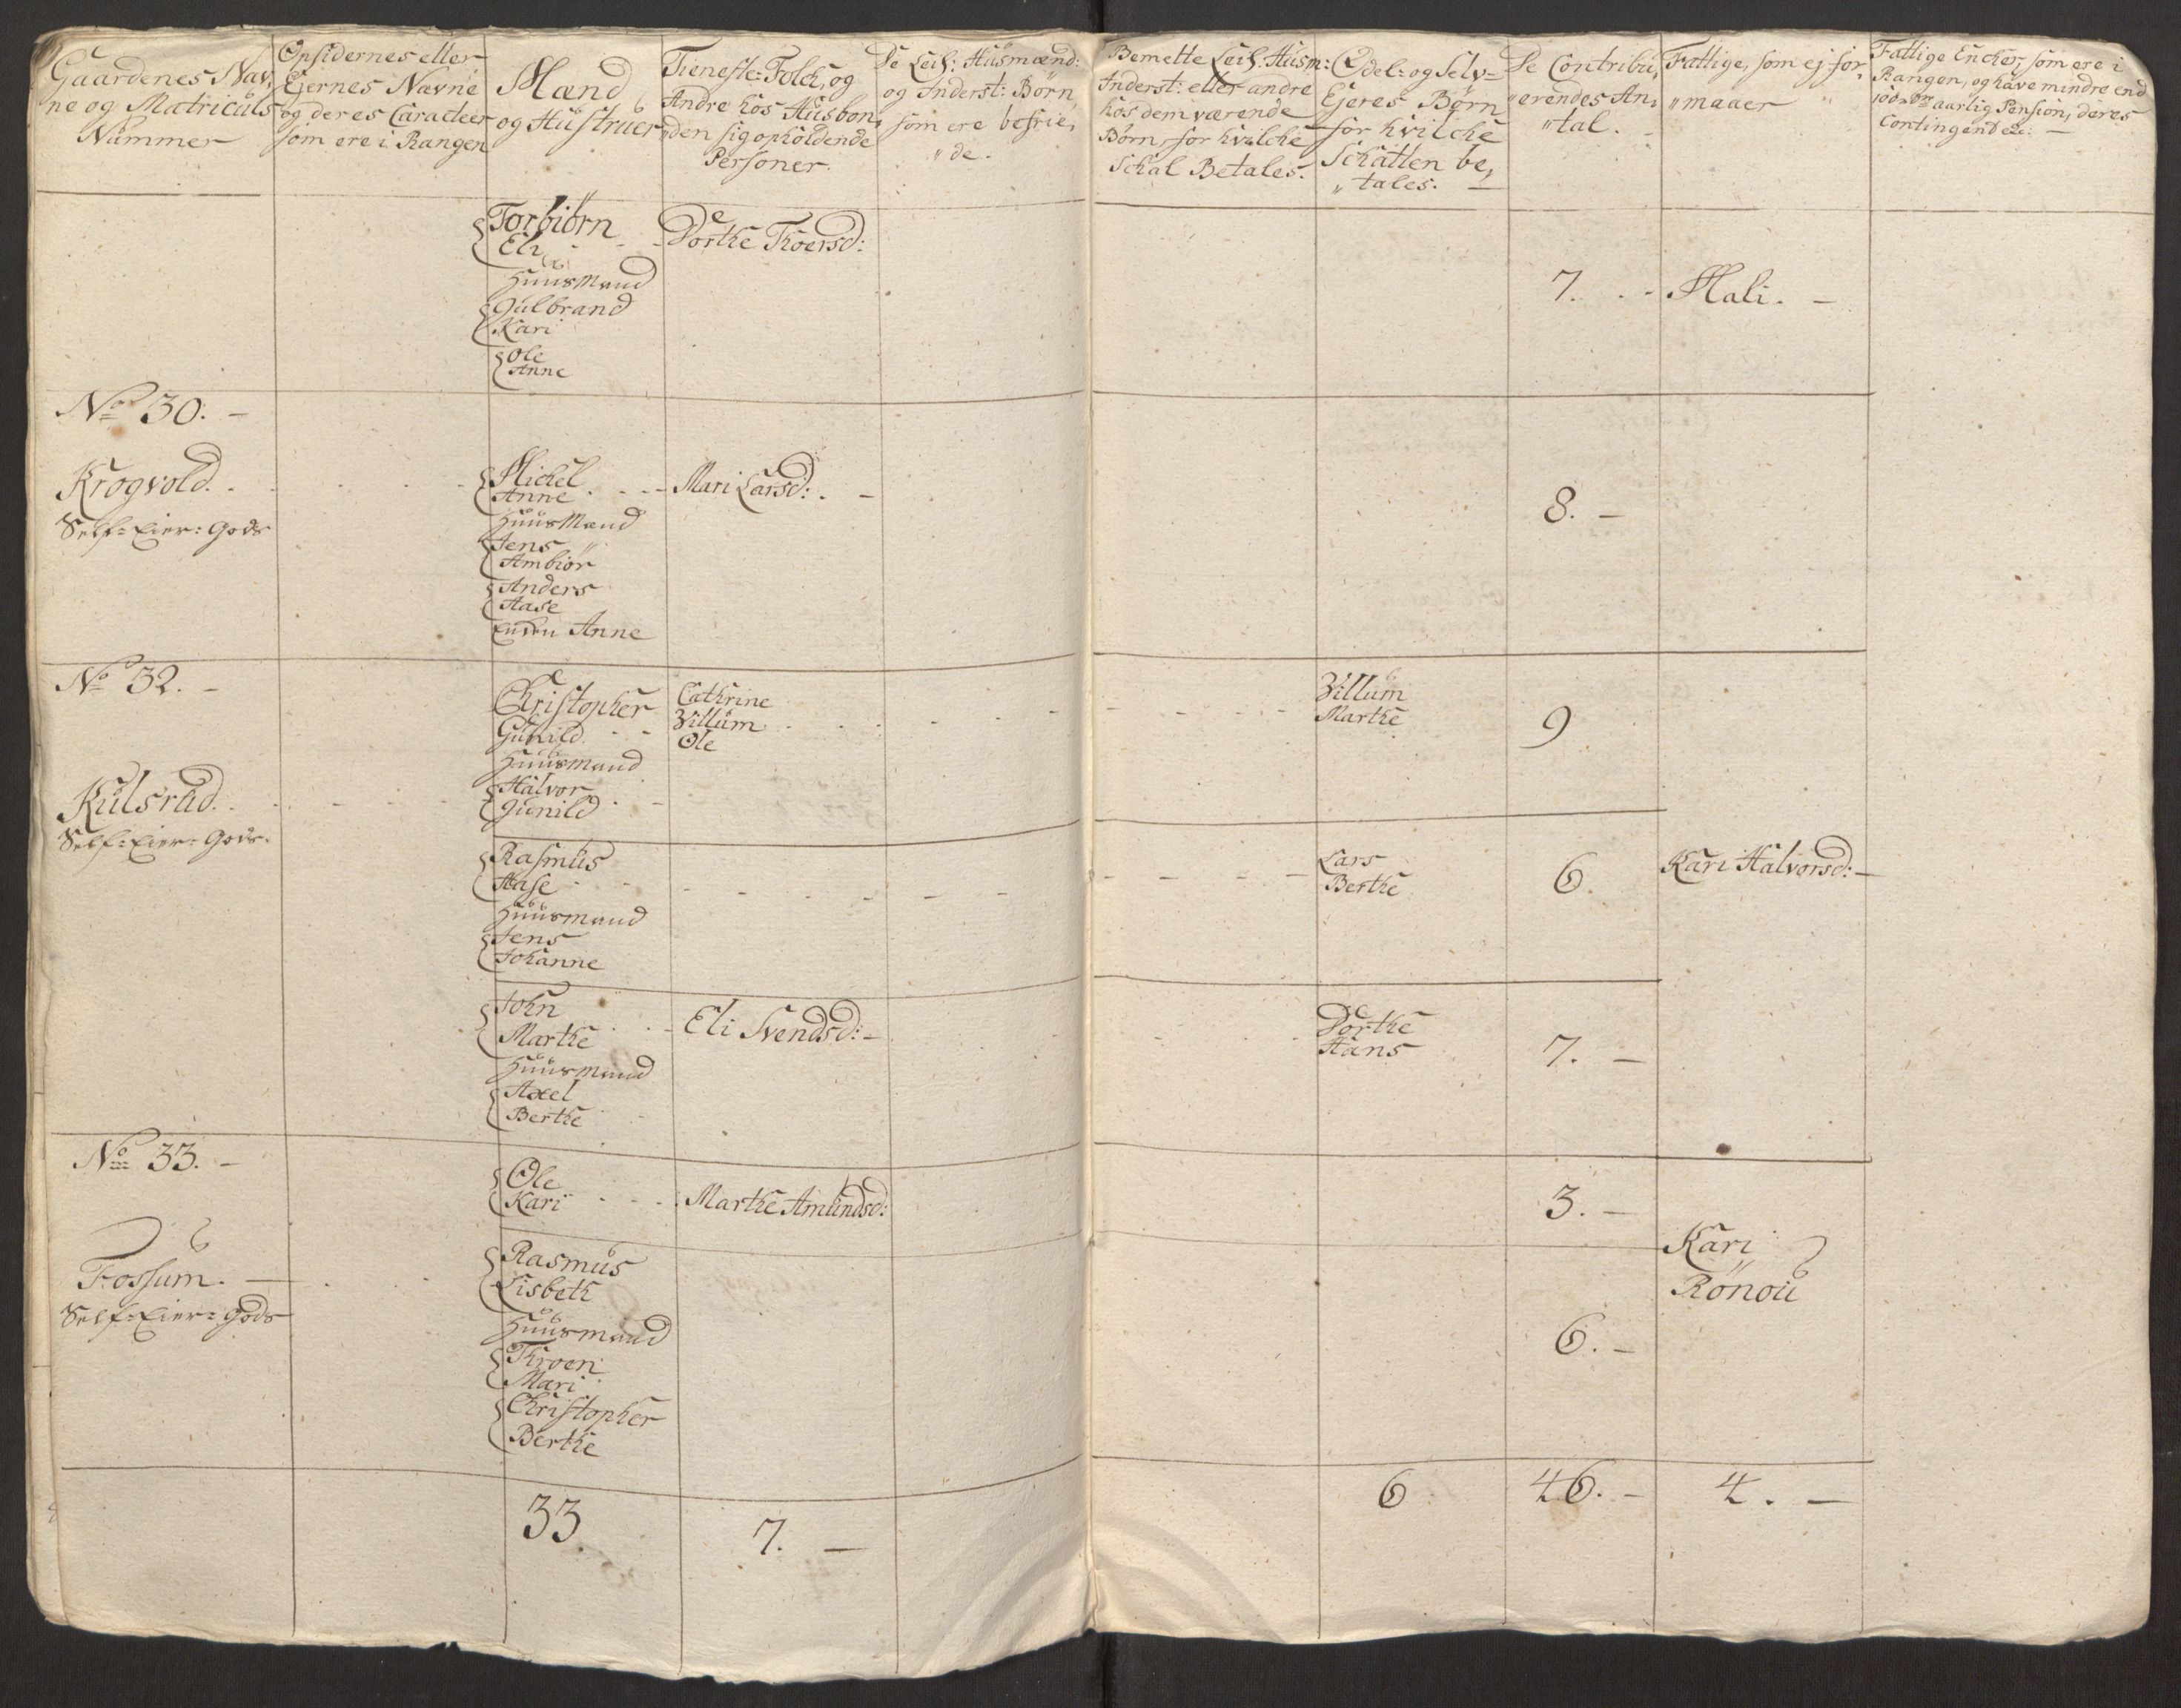 Gaardenes Nav,
ne og Matriculs
Nummer
Opsidernes eller
Ejernes Navne
og deres Caracteer
som ere i Rangen
Mænd
og Hustruer
Tieneste-Folck, og
Andre hos Husbon,
den sig opholdende
Personer.
De Leil: Husmænd:
og Inderst: Børn,
som ere befrie,
"de.
Bemette Leil: Husm:
Inderst: eller andre
hos dem værende
Børn, for hvilche
Schal Betales.
Odel: og Selv-
Ejeres Børn
for hvilche
Schatten be,
"tales.
De Contribu,
"erendes An,
"tal.
Fattige, som ej for,
"maaer
Fattige Encker, som ere i
Rangen, og have mindre end
100 rdr aarlig Pension, deres
Contingent &c: —
Torbiørn
Eli
Dorthe Thoersd:
Huusmand
Gulbrand
Kari
Ole
Anne
7. - Mali. -
No 30. -
Krogvold.
Self-Eier-Gods
Michel
Anne - - - Mari Larsd: . -
Huusmand
Jens
Ambiør
Anders
Aase
Enken Anne
8. -
No 32. -
Kulsrud.
Self-Eier-Gods.
Christopher
Gunild.
Cathrine
Villum
Ole
Villum
Marthe
9
Huusmand
Halvor
Gunild
Rasmus
Aase
Lars
Berthe
6. Kari Halvorsd: -
Huusmand
Jens
Johanne
John
Marthe
Eli Svendsd: -
Dorthe
Hans
7. -
Huusmand
Axel
Berthe
No 33. -
Fossum. —
Self-Eier-Gods
Ole
Kari - - - Marthe Amundsd:
3. -
Kari
Rønou
Rasmus
Lisbeth
Huusmand
Throen
Mari
Christopher
Berthe
6. -
33. 7. — 6 46. - 4. —